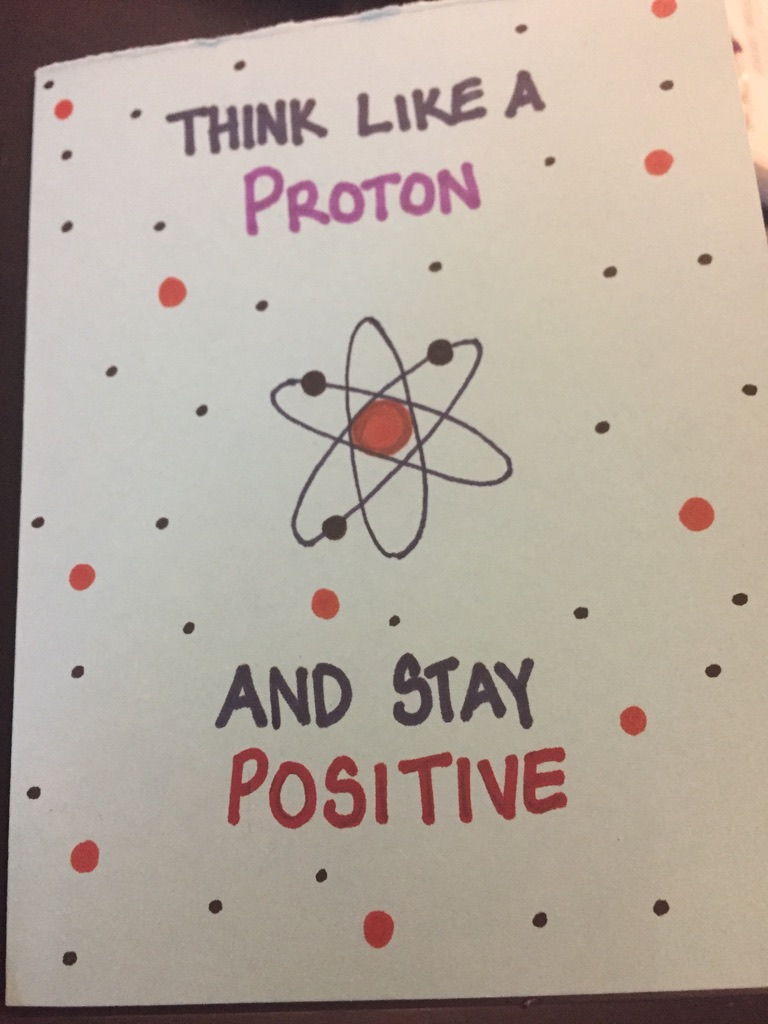 THINK LIKE A
PROTON
AND STAY
POSITIVE